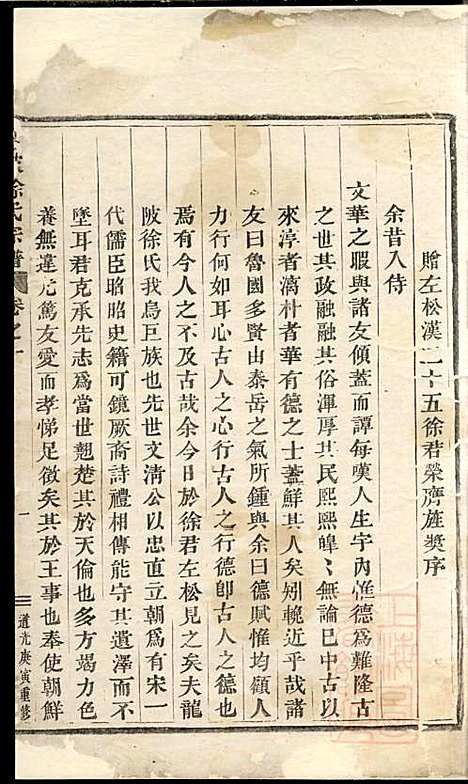 贈左松漢二十五徐君榮躋旌獎序
余昔入侍
文華之暇與諸友傾蓋而譚每嘆人生宇內惟德為難隆古
之世其政融融其俗渾厚其民熙熙皥〻無論已中古以
來淳者漓朴者華有德之士蓋鮮其人矣矧輓近乎哉諸
友曰魯國多賢山泰岳之氣所鍾與余曰德賦惟均顧人
力行何如耳心古人之心行古人之行德卽古人之德也
焉有今人之不及古哉余今日於徐君左松見之矣夫龍
陂徐氏我烏巨族也先世文淸公以忠直立朝為有宋一
代儒臣昭昭史籍可鏡厥裔詩禮相傳能守其遺澤而不
墜耳君克承先志為當世翹楚其於天倫也多方竭力色
養無違尤篤友愛而孝悌足徵矣其於王事也奉使朝鮮
徐氏宗譜
卷之一
一
道光庚寅重修